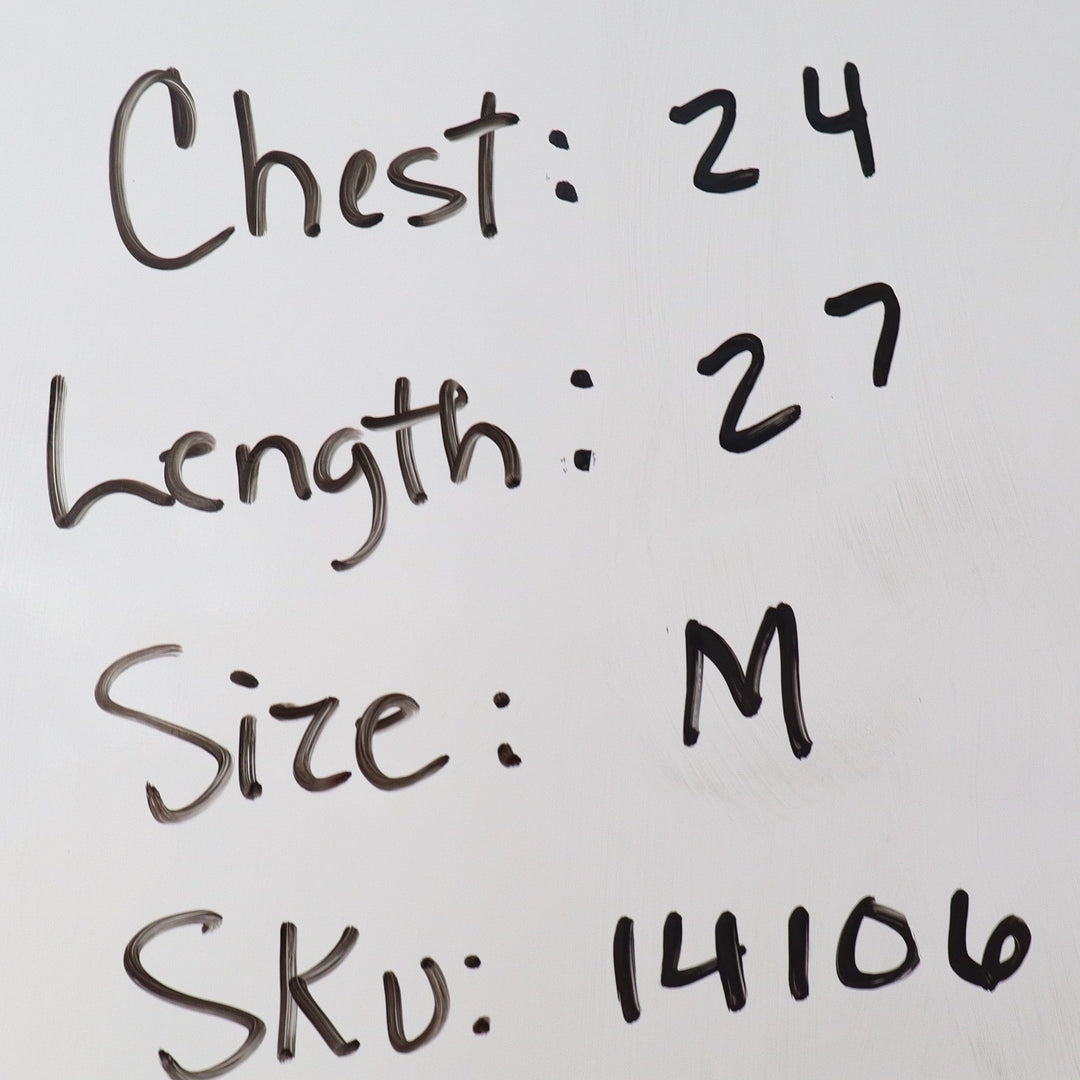 Chest: 24
Length: 27
Size: M
SKU: 14106